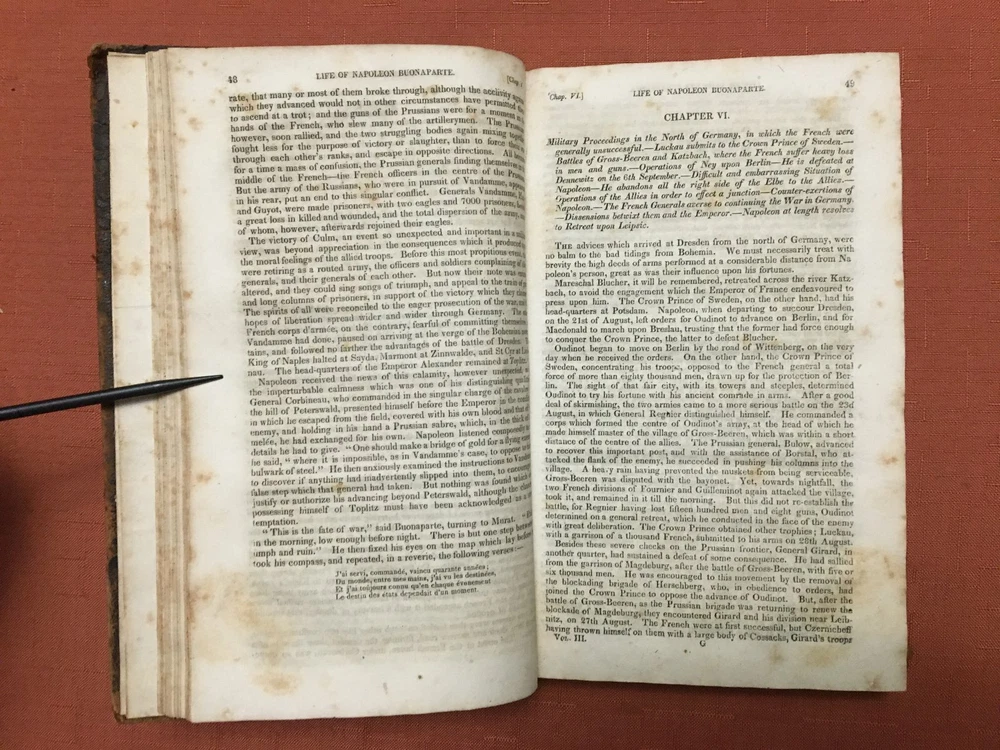 48
LIFE OF NAPOLEON BUONAPARTE.
[Chap.
rate, that many or most of them broke through, although the acclivity
which they advanced would not in other circumstances have permitted
to ascend at a trot; and the guns of the Prussians were for a moment in
hands of the French, who slew many of the artillerymen. The
however, soon rallied, and the two struggling bodies again mixing
fought less for the purpose of victory or slaughter, than to force
through each other's ranks, and escape in opposite directions. All
for a time a mass of confusion, the Prussian generals finding themselves
middle of the French—the French officers in the centre of the
But the army of the Russians, who were in pursuit of Vandamme,
in his rear, put an end to this singular conflict. Generals Vandamme,
and Guyot, were made prisoners, with two eagles and 7000 prisoners,
a great loss in killed and wounded, and the total dispersion of the army,
of whom, however, afterwards rejoined their eagles.
The victory of Culm, an event so unexpected and important in a
view, was beyond appreciation in the consequences which it produced
the moral feelings of the allied troops. Before this most propitious event,
were retiring as a routed army, the officers and soldiers complaining of
generals, and their generals of each other. But now their note was
altered, and they could sing songs of triumph, and appeal to the train of
and long columns of prisoners, in support of the victory which they
The spirits of all were reconciled to the eager prosecution of the war,
hopes of liberation spread wider and wider through Germany. The
French corps d'armée, on the contrary, fearful of committing themselves
Vandamme had done, paused on arriving at the verge of the Bohemian
tains, and followed no farther the advantages of the battle of Dresden.
King of Naples halted at Sayda, Marmont at Zinnwalde, and St Cyr at
nau. The head-quarters of the Emperor Alexander remained at Toplitz.
Napoleon received the news of this calamity, however unexpected,
the imperturbable calmness which was one of his distinguishing
General Corbineau, who commanded in the singular charge of the
the hill of Peterswald, presented himself before the Emperor in the
in which he escaped from the field, covered with his own blood and that of
enemy, and holding in his hand a Prussian sabre, which, in the thick of
melée, he had exchanged for his own. Napoleon listened composedly
details he had to give. "One should make a bridge of gold for a flying
he said, "where it is impossible, as in Vandamme's case, to oppose
bulwark of steel." He then anxiously examined the instructions to
to discover if anything had inadvertently slipped into them, to encourage
false step which that general had taken. But nothing was found which
justify or authorize his advancing beyond Peterswald, although the
possessing himself of Toplitz must have been acknowledged as a
temptation.
"This is the fate of war," said Buonaparte, turning to Murat.
in the morning, low enough before night. There is but one step between
umph and ruin." He then fixed his eyes on the map which lay before
took his compass, and repeated, in a reverie, the following verses:—
J'ai servi, commandé, vaincu quarante années;
Du monde, entre mes mains, j'ai vu les destinées,
Et j'ai toujours connu qu'en chaque évenement
Le destin des états dependait d'un moment.
Chap. VI.]
LIFE OF NAPOLEON BUONAPARTE.
49
CHAPTER VI.
Military Proceedings in the North of Germany, in which the French were
generally unsuccessful.—Luckau submits to the Crown Prince of Sweden.—
Battles of Gross-Beeren and Katzbach, where the French suffer heavy loss
in men and guns.—Operations of Ney upon Berlin—He is defeated at
Dennewitz on the 6th September.—Difficult and embarrassing Situation of
Napoleon—He abandons all the right side of the Elbe to the Allies.—
Operations of the Allies in order to effect a junction—Counter-exertions of
Napoleon.—The French Generals averse to continuing the War in Germany.
—Dissensions betwixt them and the Emperor.—Napoleon at length resolves
to Retreat upon Leipsic.
THE advices which arrived at Dresden from the north of Germany, were
no balm to the bad tidings from Bohemia. We must necessarily treat with
brevity the high deeds of arms performed at a considerable distance from Na
poleon's person, great as was their influence upon his fortunes.
Mareschal Blucher, it will be remembered, retreated across the river Katz-
bach, to avoid the engagement which the Emperor of France endeavoured to
press upon him. The Crown Prince of Sweden, on the other hand, had his
head-quarters at Potsdam. Napoleon, when departing to succour Dresden,
on the 21st of August, left orders for Oudinot to advance on Berlin, and for
Macdonald to march upon Breslau, trusting that the former had force enough
to conquer the Crown Prince, the latter to defeat Blucher.
Oudinot began to move on Berlin by the road of Wittenberg, on the very
day when he received the orders. On the other hand, the Crown Prince of
Sweden, concentrating his troops, opposed to the French general a total
force of more than eighty thousand men, drawn up for the protection of Ber-
lin. The sight of that fair city, with its towers and steeples, determined
Oudinot to try his fortune with his ancient comrade in arms. After a good
deal of skirmishing, the two armies came to a more serious battle on the 23d
August, in which General Regnier distinguished himself. He commanded a
corps which formed the centre of Oudinot's array, at the head of which he
made himself master of the village of Gross-Beeren, which was within a short
distance of the centre of the allies. The Prussian general, Bulow, advanced
to recover this important post, and with the assistance of Borstal, who at-
tacked the flank of the enemy, he succeeded in pushing his columns into the
village. A heavy rain having prevented the muskets from being serviceable,
Gross-Beeren was disputed with the bayonet. Yet, towards nightfall, the
two French divisions of Fournier and Guilleminot again attacked the village,
took it, and remained in it till the morning. But this did not re-establish the
battle, for Regnier having lost fifteen hundred men and eight guns, Oudinot
determined on a general retreat, which he conducted in the face of the enemy
with great deliberation. The Crown Prince obtained other trophies; Luckau,
with a garrison of a thousand French, submitted to his arms on 28th August.
Besides these severe checks on the Prussian frontier, General Girard, in
another quarter, had sustained a defeat of some consequence. He had sallied
from the garrison of Magdeburg, after the battle of Gross-Beeren, with five or
six thousand men. He was encouraged to this movement by the removal of
the blockading brigade of Herschberg, who, in obedience to orders, had
joined the Crown Prince to oppose the advance of Oudinot. But, after the
battle of Gross-Beeren, as the Prussian brigade was returning to renew the
blockade of Magdeburg, they encountered Girard and his division near Leib-
nitz, on 27th August. The French were at first successful, but Czernicheff
having thrown himself on them with a large body of Cossacks, Girard's troops
Vol. III.
G